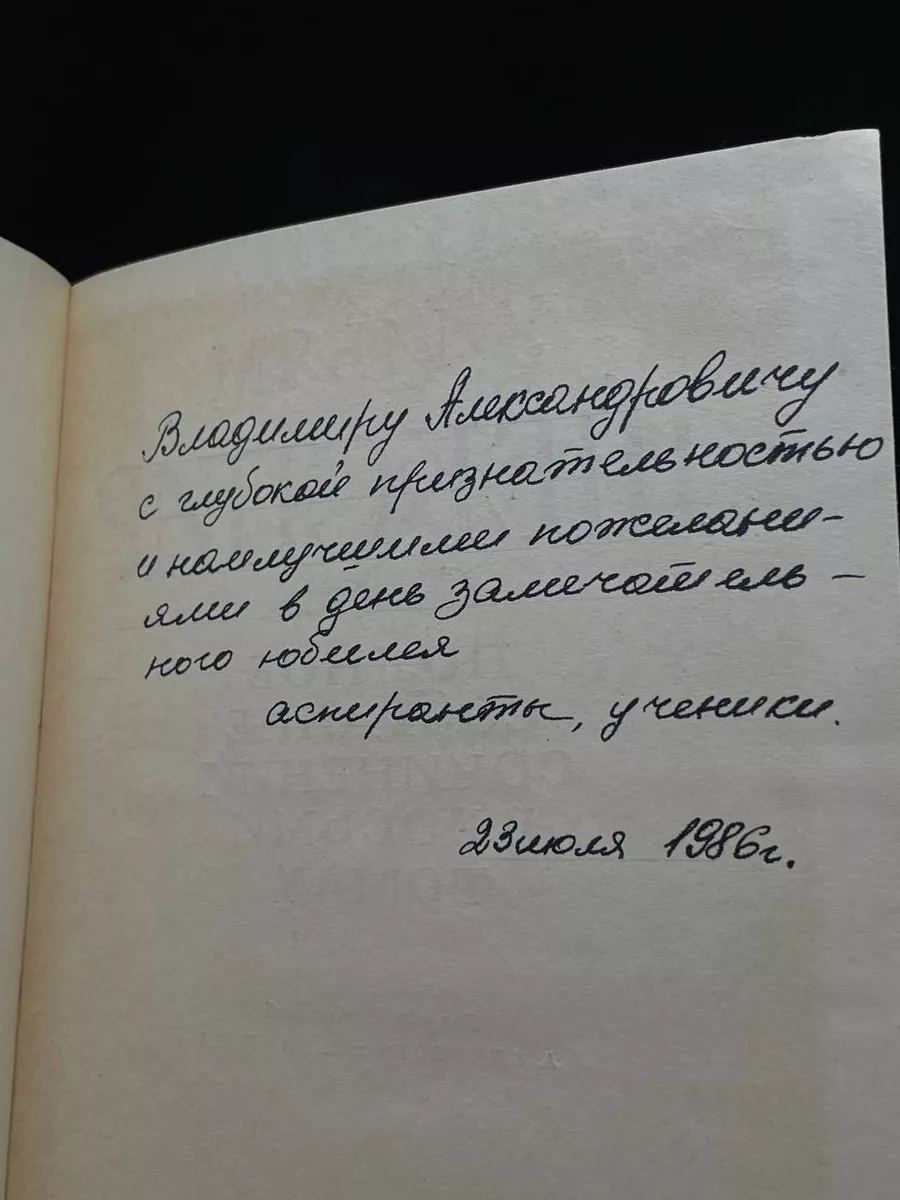 Владимиру Александровичу
с глубокой признательностью
и наилучшими пожелани-
ями в день замечатель-
ного юбилея
аспиранты, ученики.
23 июля 1986г.